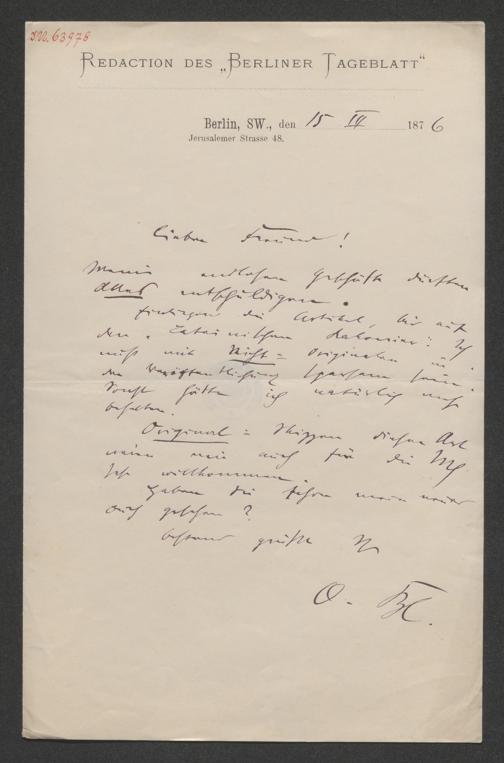 I.N. 63978
REDACTION DES „BERLINER TAGEBLATT“
Berlin, SW., den 15 IV 1876
Jerusalemer Strasse 48.
Lieber Freund!
Meine endlosen Geschäfte dürften
Alles entschuldigen.
die Artikel, bis auf
den
muß mit Nicht= Originalen in
der Veröffentlichung sparsam sein.
Sonst hätte ich natürlich
behalten.
Original= Skizzen dieser Art
wären mir auch für die
sehr willkommen.
Haben Sie schon mein neues
Buch gesehen?
Bestens grüßt
O. Bl.